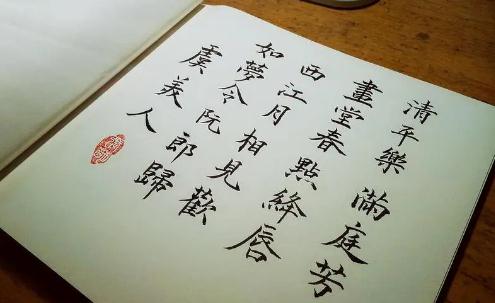 清平樂 滿庭芳
畫堂春 點絳唇
西江月 相見歡
如夢令 阮郎歸
虞美人